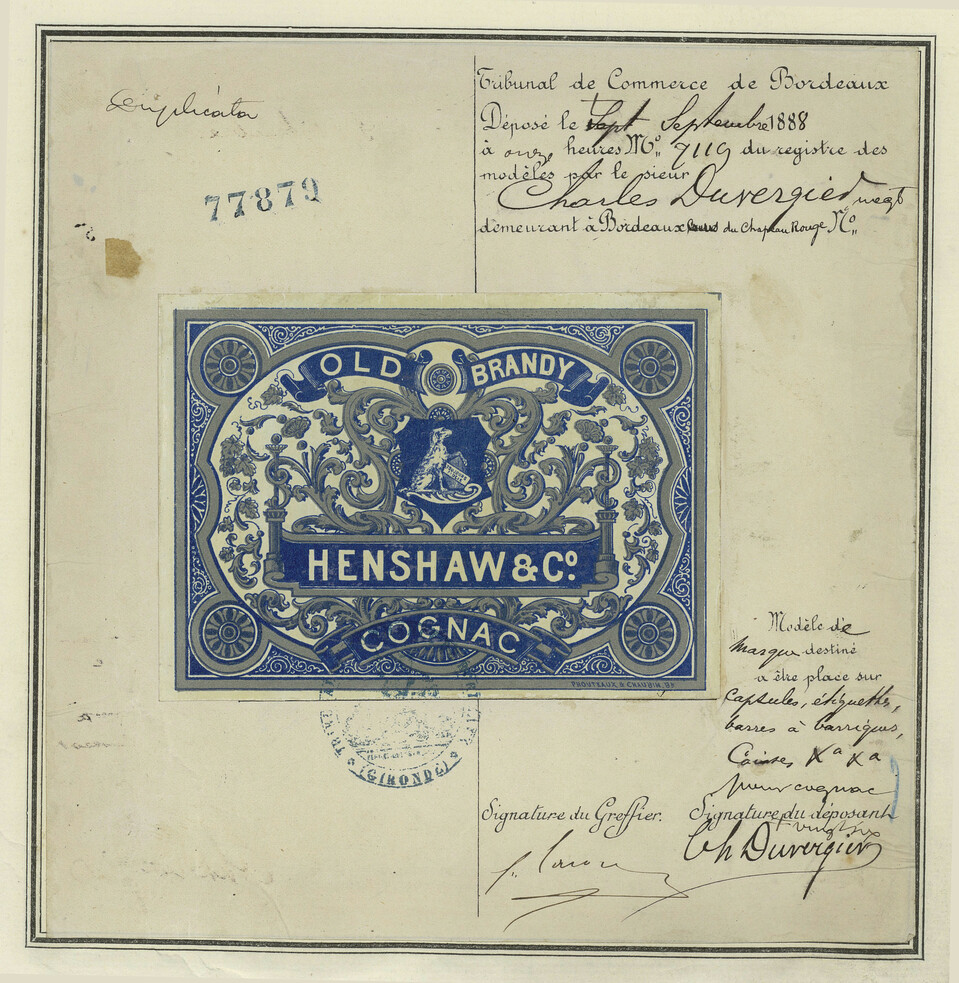 Duplicata
77879
Tribunal de Commerce de Bordeaux
Déposé le Sept Septembre 1888
à onze heures No. 7119 du registre des
modèles par le sieur
Charles Duvergier
demeurant à Bordeaux du Chapeau Rouge No.
OLD BRANDY
HENSHAW & Co.
COGNAC
PROUTEAUX & CHAUVIN, BX
(GIRONDE)
Modèle de
Marque destiné
à être place sur
Capsules, étiquettes,
barres à barriques,
Caisses Xa Xa
pour cognac
Signature du Greffier.
Signature du déposant
Ch Duvergier